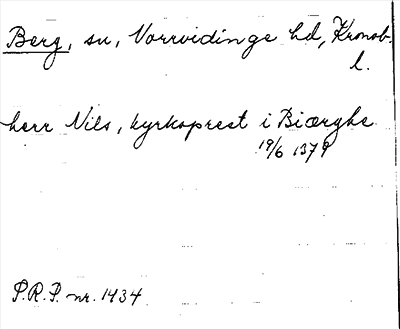 Berg, sn, Norrvidinge hd, Kronob.
l.
herr Nils, kyrkoprest i Biærghe
19/6 1379
P.R.P. nr. 1434